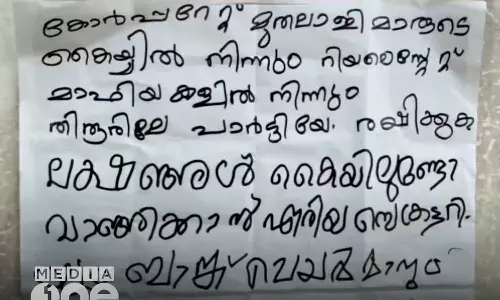 കോർപ്പറേറ്റ് മുതലാളിമാരുടെ
കൈയ്യിൽ നിന്നും റിയലെസ്റ്റേറ്റ്
മാഫിയകളിൽ നിന്നും
തിരൂരിലേ പാർട്ടിയേ. രക്ഷിക്കുക
ലക്ഷങ്ങൾ കൈയിലുണ്ടോ
വാങ്ങിക്കാൻ ഏരിയ സെക്രട്ടറി.
ബാങ്ക് ചെയർമാനും
MEDIA
one